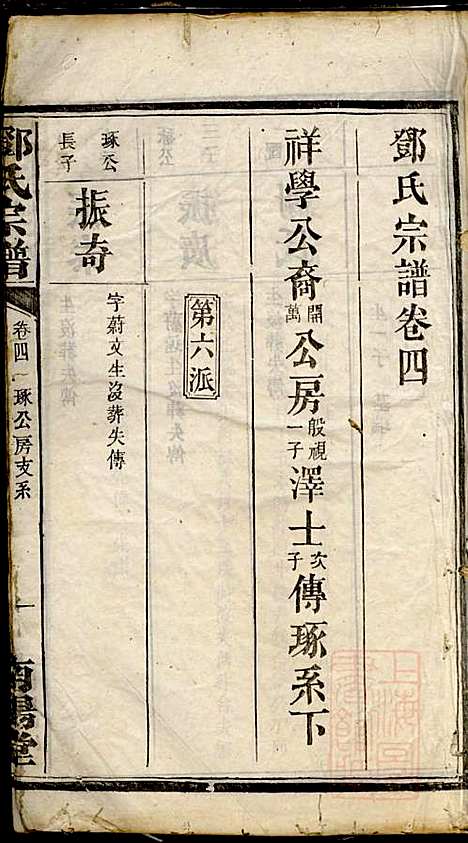 鄧氏宗譜卷四
祥學公裔開萬公房般視一子澤士次子傳琢系下
第六派
琢公長子
振奇
字蔚文生沒葬失傳
鄧氏宗譜
卷四
琢公房支系
一
南陽堂